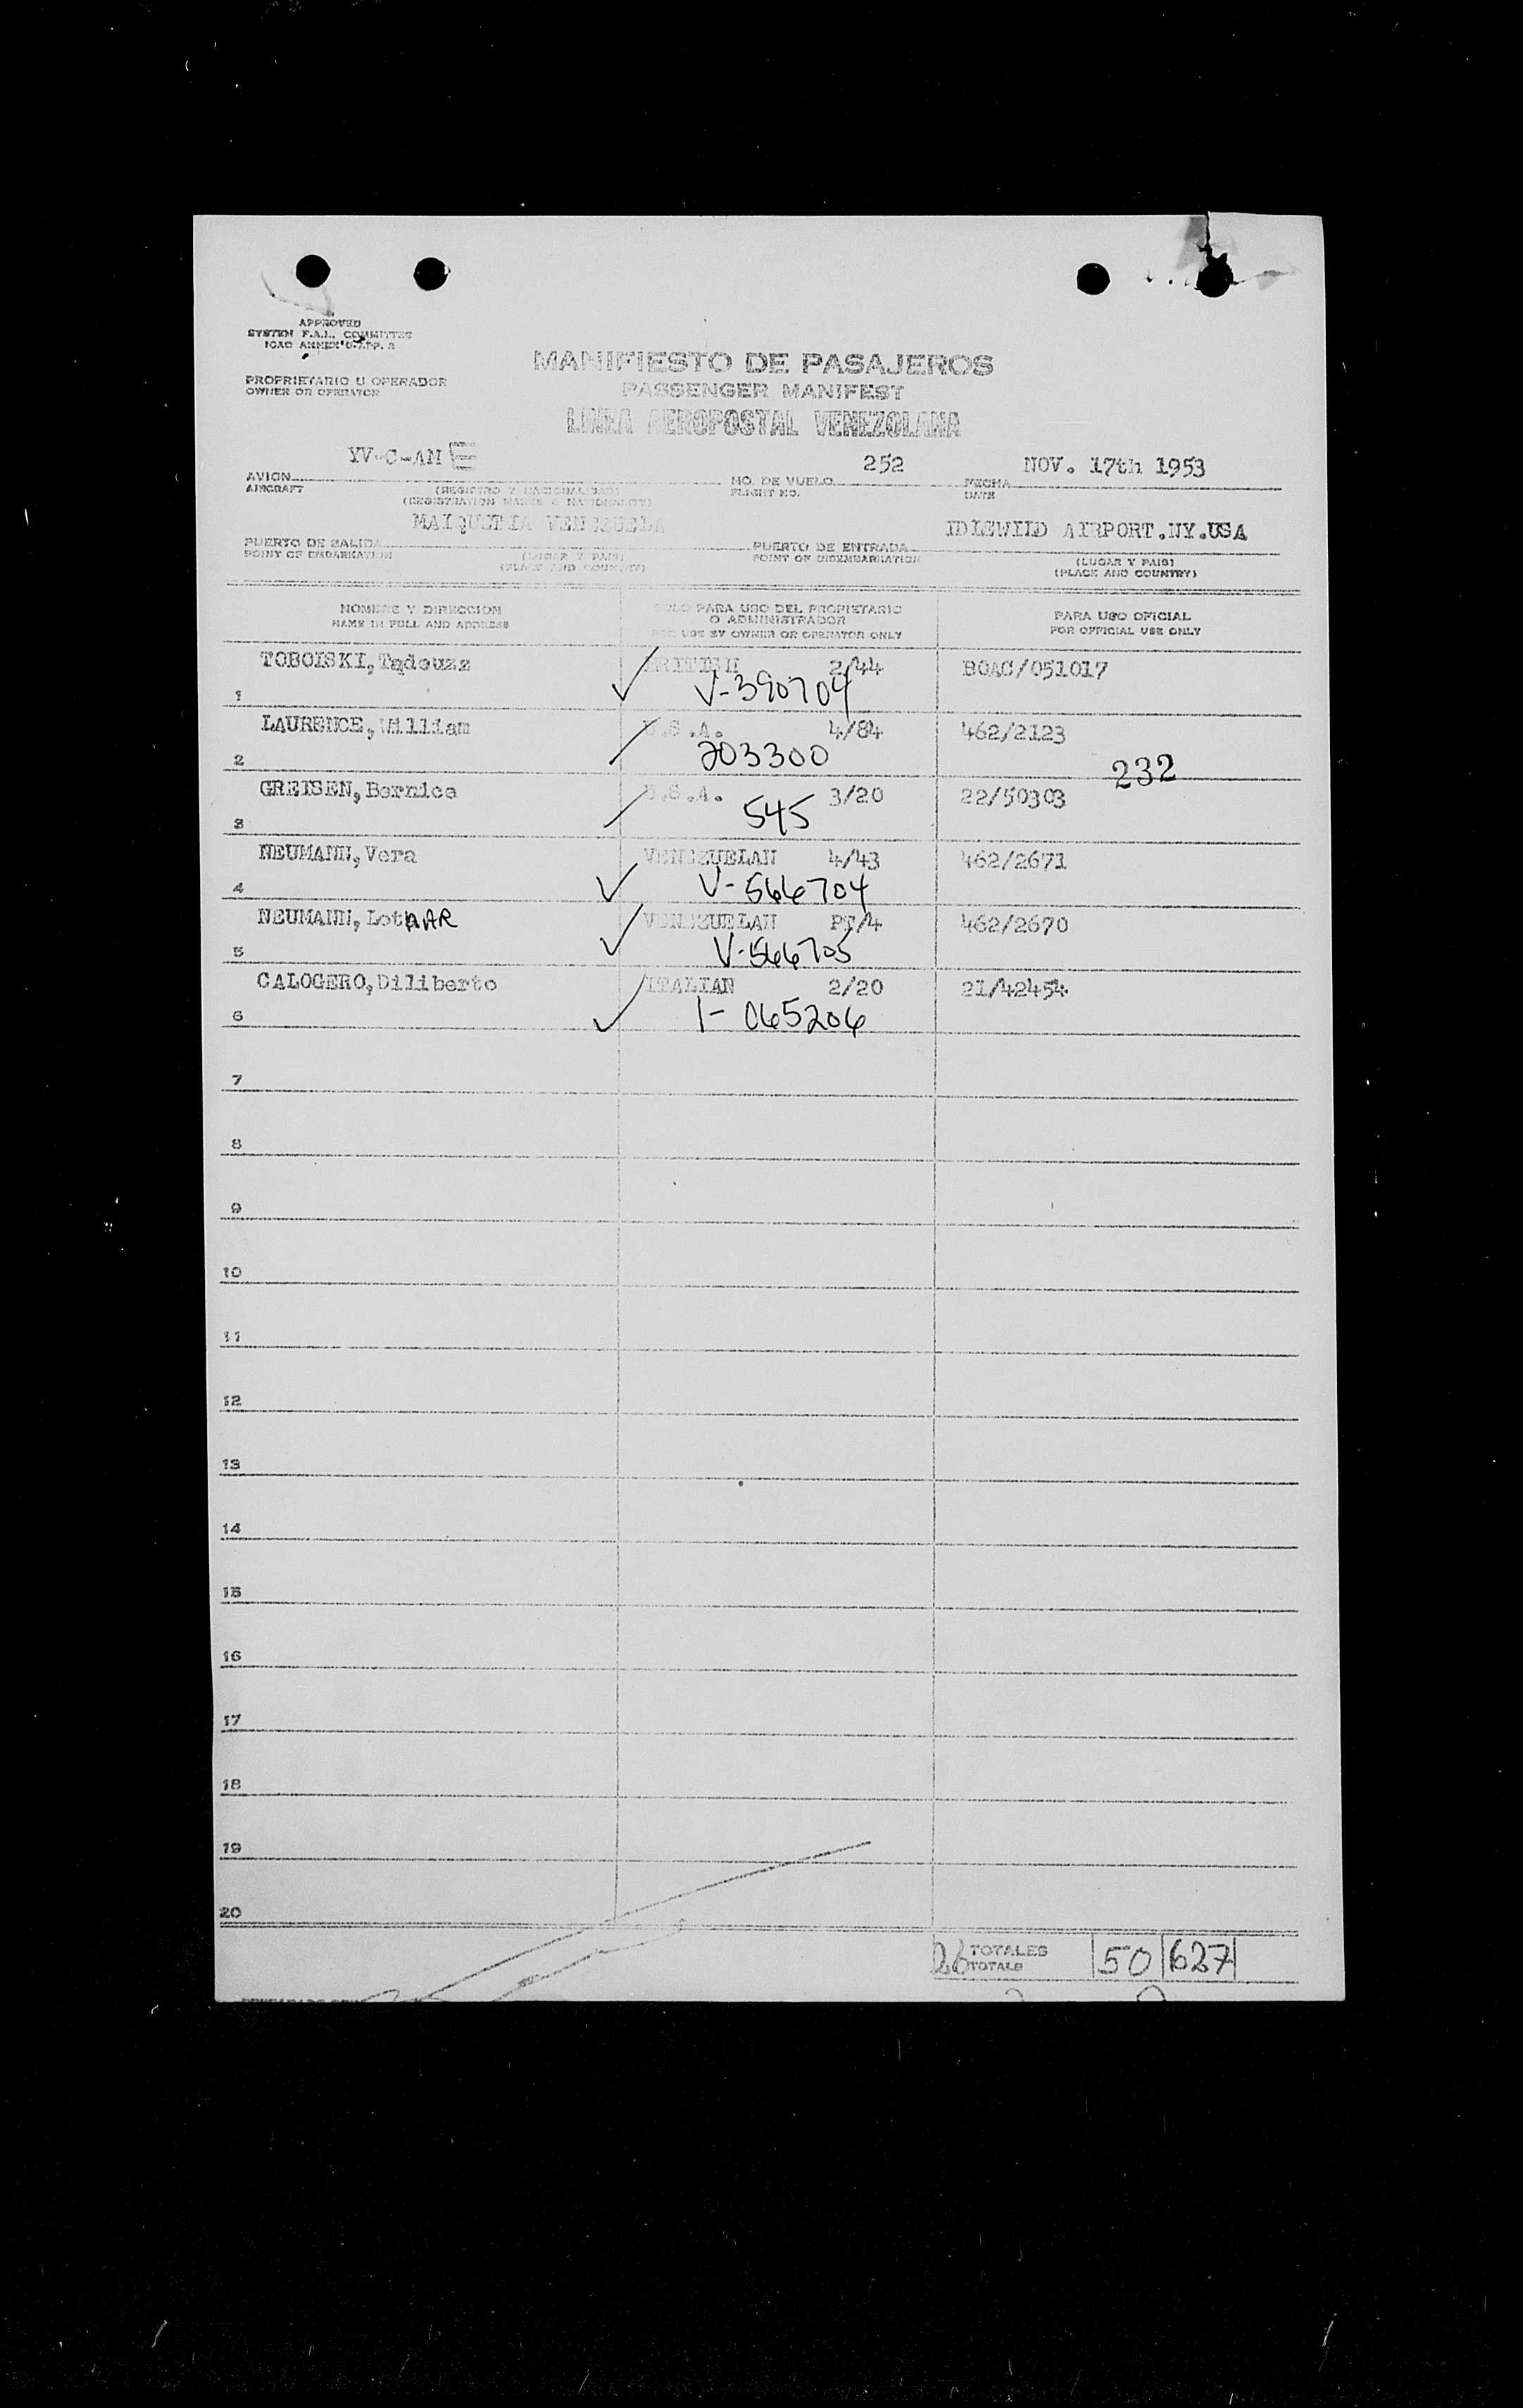 APPROVED
SYSTEM F.A.L. COMMITTEE
ICAO ANNEX 9-APP. 2
MANIFIESTO DE PASAJEROS
PASSENGER MANIFEST
LINEA AEROPOSTAL VENEZOLANA
PROPRIETARIO U OPERADOR
OWNER OR OPERATOR
YV-C-AME 252 NOV. 17th 1953
AVION NO. DE VUELO FECHA
AIRCRAFT (REGISTRO Y NACIONALIDAD) FLIGHT NO. DATE
(REGISTRATION MARKS & NATIONALITY)
MAIQUETIA VENEZUELA IDLEWILD AIRPORT.NY.USA
PUERTO DE SALIDA PUERTO DE ENTRADA
POINT OF EMBARKATION (LUGAR Y PAIS) POINT OF DISEMBARKATION (LUGAR Y PAIS)
(PLACE AND COUNTRY) (PLACE AND COUNTRY)
NOMBRE Y DIRECCION SOLO PARA USO DEL PROPIETARIO PARA USO OFICIAL
NAME IN FULL AND ADDRESS O ADMINISTRADOR FOR OFFICIAL USE ONLY
FOR USE BY OWNER OR OPERATOR ONLY
TOBOISKI,Tadeusz ✓ BRITISH 2/44 BOAC/051017
1 V-390704
LAURENCE,William U.S.A. 4/84 462/2123
2 203300 232
GREISEN,Bernice U.S.A. 3/20 22/50303
3 545
NEUMANN,Vera VENEZUELAN 4/43 462/2671
4 ✓ V-566704
NEUMANN,LotHAR VENEZUELAN PT/4 462/2670
5 ✓ V-566705
CALOGERO,Diliberto ITALIAN 2/20 21/42454
6 ✓ I-065206
7
8
9
10
11
12
13
14
15
16
17
18
19
20
26 TOTALES 50 627
TOTALS